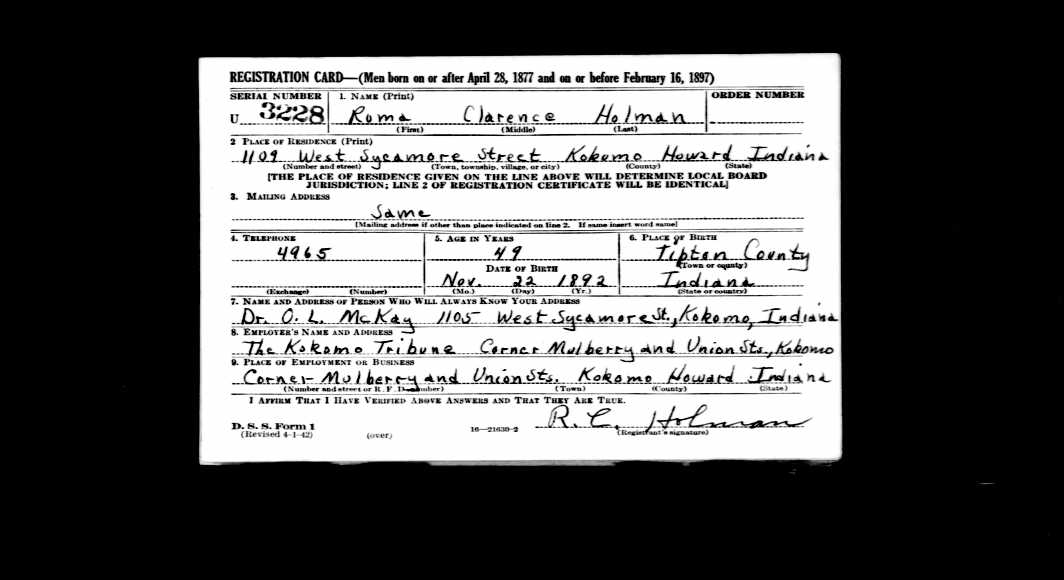 REGISTRATION CARD—(Men born on or after April 28, 1877 and on or before February 16, 1897)
SERIAL NUMBER 1. NAME (Print) ORDER NUMBER
U 3228 Roma Clarence Holman
(First) (Middle) (Last)
2 PLACE OF RESIDENCE (Print)
1109 West Sycamore Street Kokomo Howard Indiana
(Number and street) (Town, township, village, or city) (County) (State)
[THE PLACE OF RESIDENCE GIVEN ON THE LINE ABOVE WILL DETERMINE LOCAL BOARD
JURISDICTION; LINE 2 OF REGISTRATION CERTIFICATE WILL BE IDENTICAL]
3. MAILING ADDRESS
Same
[Mailing address if other than place indicated on line 2. If same insert word same]
4. TELEPHONE 5. AGE IN YEARS 6. PLACE OF BIRTH
4965 49 Tipton County
DATE OF BIRTH (Town or county)
Nov. 22 1892 Indiana
(Exchange) (Number) (Mo.) (Day) (Yr.) (State or country)
7. NAME AND ADDRESS OF PERSON WHO WILL ALWAYS KNOW YOUR ADDRESS
Dr. O. L. McKay 1105 West Sycamore St., Kokomo, Indiana
8. EMPLOYER'S NAME AND ADDRESS
The Kokomo Tribune Corner Mulberry and Union Sts., Kokomo
9. PLACE OF EMPLOYMENT OR BUSINESS
Corner Mulberry and Union Sts. Kokomo Howard Indiana
(Number and street or R. F. D. number) (Town) (County) (State)
I AFFIRM THAT I HAVE VERIFIED ABOVE ANSWERS AND THAT THEY ARE TRUE.
R. C. Holman
D. S. S. Form 1
(Revised 4-1-42) (over) 16—21630-2 (Registrant's signature)